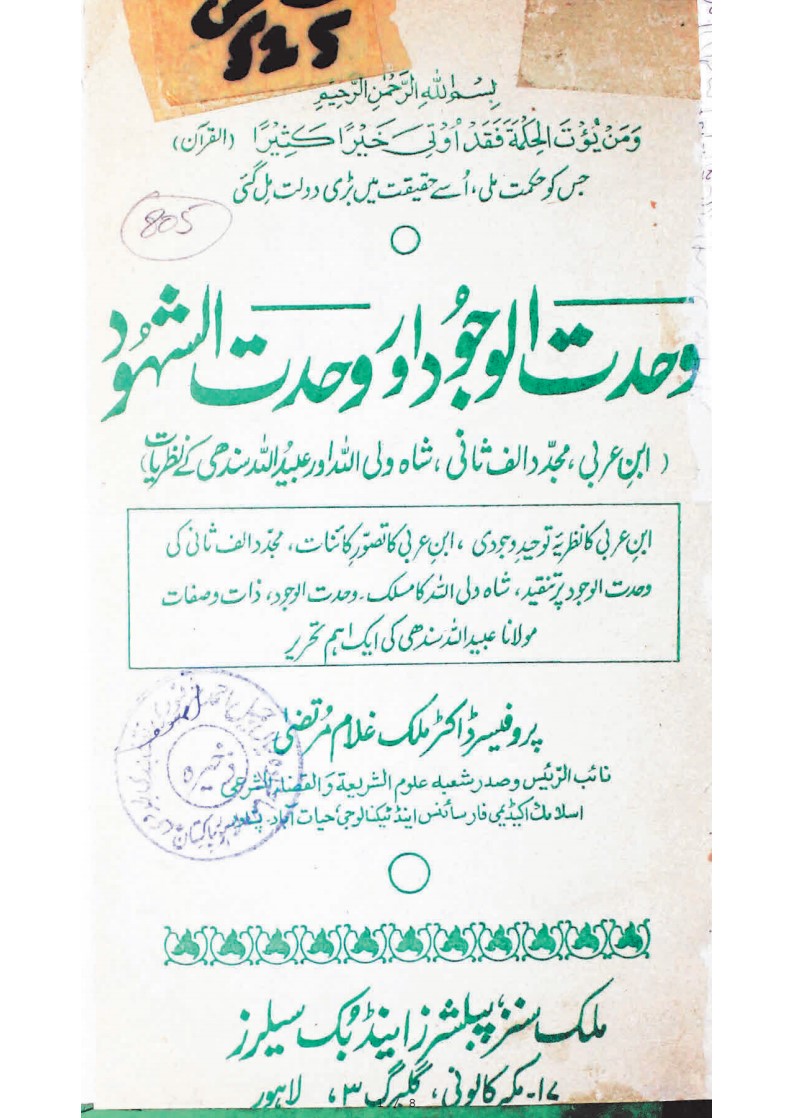 525
بِسْمِ اللهِ الرَّحْمٰنِ الرَّحِيْمِ
وَمَنْ يُّؤْتَ الْحِكْمَةَ فَقَدْ اُوْتِىَ خَيْرًا كَثِيْرًا (القرآن)
جس کو حکمت ملی، اُسے حقیقت میں بڑی دولت مل گئی
805
وحدت الوجُود اور وحدت الشہُود
(ابنِ عربی، مجدّد الف ثانی، شاہ ولی اللہ اور عبیدُ اللہ سندھی کے نظریات)
ابنِ عربی کا نظریۂ توحیدِ وجودی، ابنِ عربی کا تصوّرِ کائنات، مجدّد الف ثانی کی
وحدت الوجود پر تنقید، شاہ ولی اللہ کا مسلک۔ وحدت الوجود، ذات وصفات
مولانا عبید اللہ سندھی کی ایک اہم تحریر
پروفیسر ڈاکٹر ملک غلام مُرتضیٰ
نائب الرّئیس و صدر شعبہ علوم الشریعۃ وَالقضاء الشرعی
اسلامک اکیڈیمی فار سائنس اینڈ ٹیکنالوجی، حیات آباد۔ پشاور
ذخیرہ
پاکستان
ملک سنز، پبلشرز اینڈ بُک سیلرز
۱۷۔ مکہ کالونی، گلبرگ ۳، لاہور
1 / 8